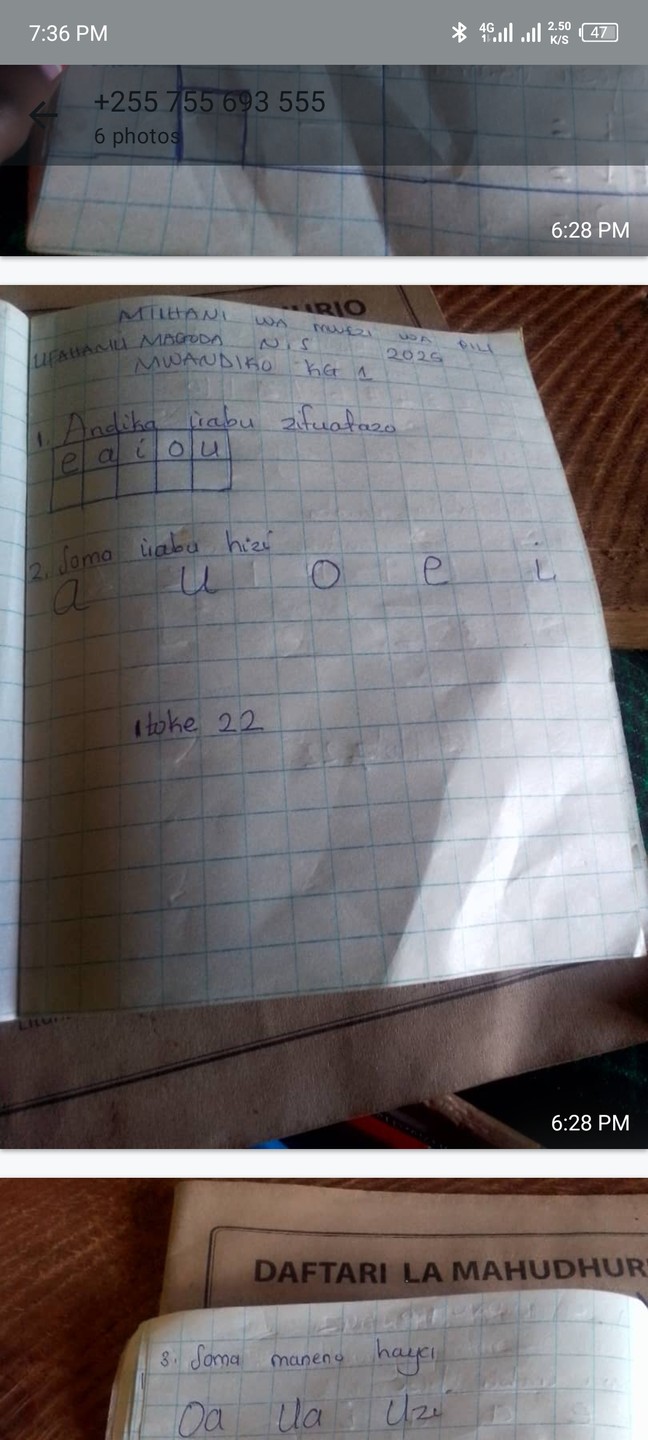 7:36 PM
4G
2.50
K/S
47
+255 755 693 555
6 photos
6:28 PM
MTIHANI WA MWEZI WA PILI
UFAHAMU MAGODA N.S 2025
MWANDIKO KG 1
1. Andika irabu zifuatazo
e a i o u
2. Soma irabu hizi
a u o e i
Itoke 22
6:28 PM
DAFTARI LA MAHUDHUR
3. Soma maneno haya
Oa Ua Uzi